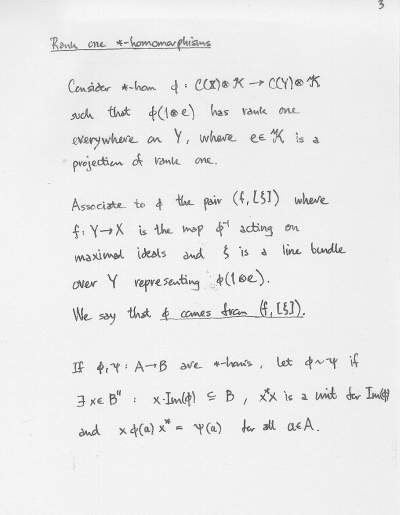 3
Rank one *-homomorphisms
Consider *-hom ϕ : C(X)⊗𝒦 → C(Y)⊗𝒦
such that ϕ(1⊗e) has rank one
everywhere on Y, where e∈𝒦 is a
projection of rank one.
Associate to ϕ the pair (f,[ξ]) where
f: Y→X is the map ϕ⁻¹ acting on
maximal ideals and ξ is a line bundle
over Y representing ϕ(1⊗e).
We say that ϕ comes from (f,[ξ]).
If ϕ,ψ : A→B are *-homs, let ϕ~ψ if
∃ x∈ B'' : x·Im(ϕ) ⊆ B, x*x is a unit for Im(ϕ)
and xϕ(a)x* = ψ(a) for all a∈A.